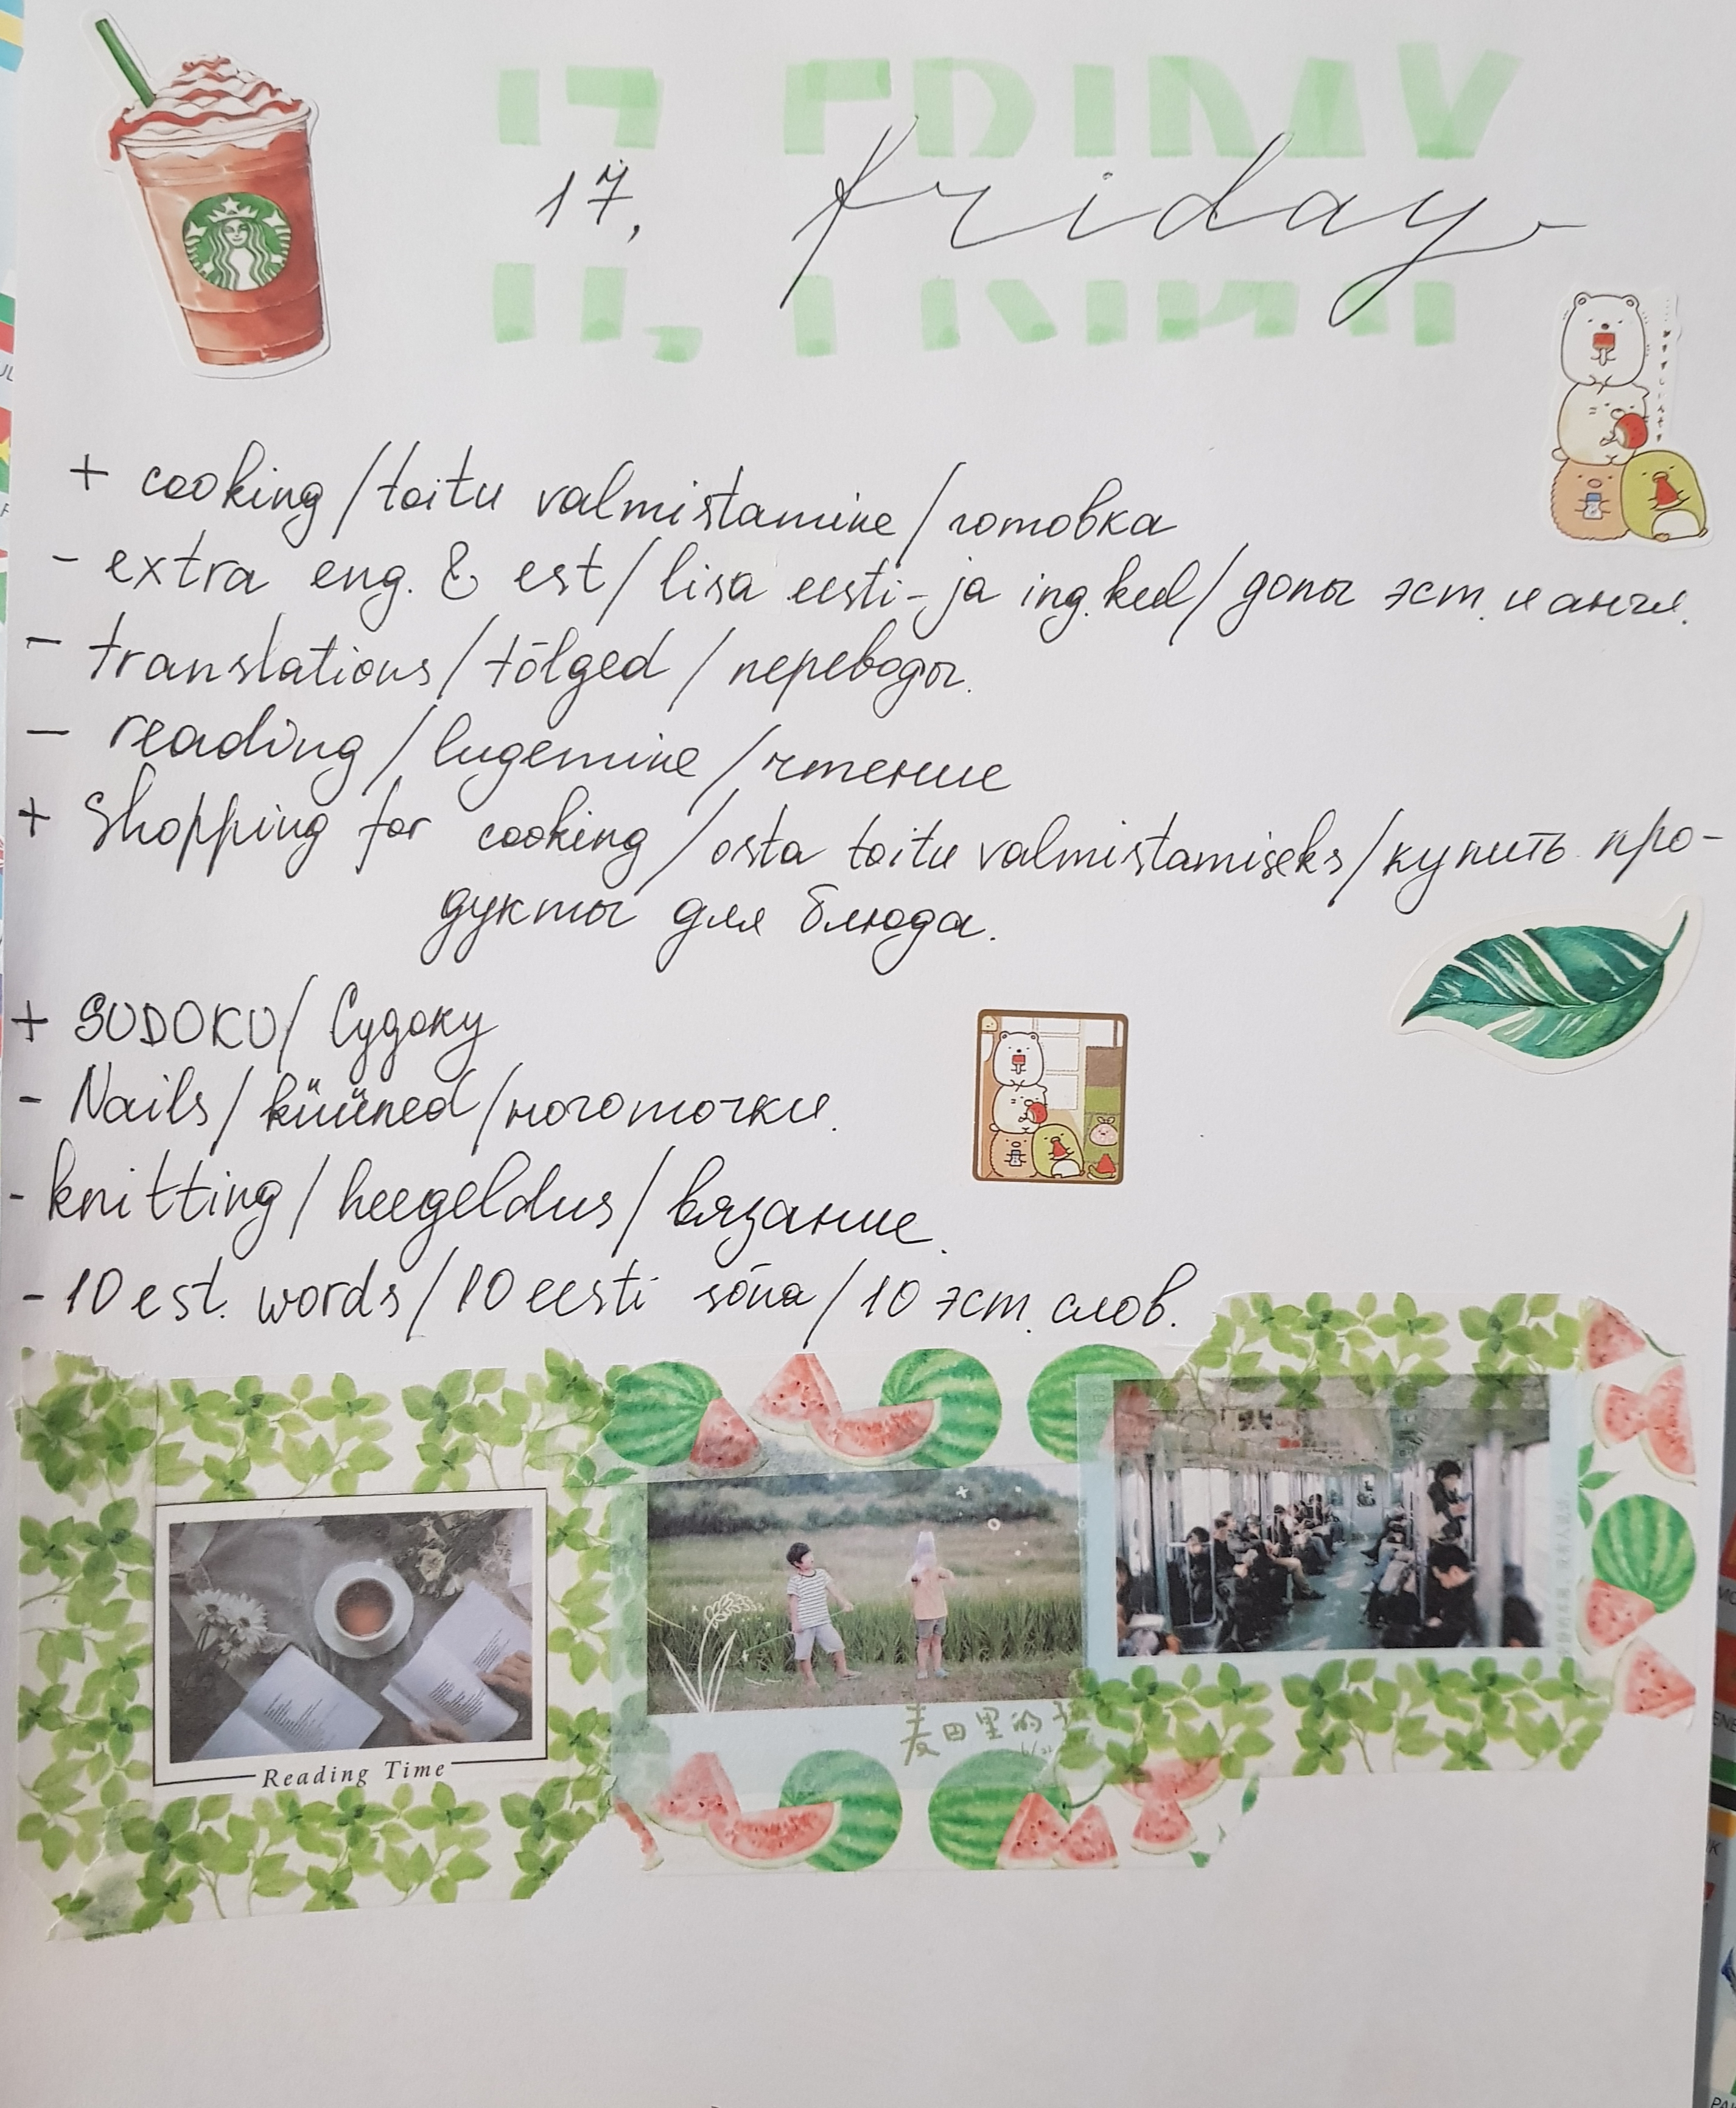 17, FRIDAY
17, friday
+ cooking / toitu valmistamine / готовка
- extra eng. & est / lisa eesti- ja ing. keel / допы эст. и англ.
- translations / tõlged / переводы.
- reading / lugemine / чтение
+ Shopping for cooking / osta toitu valmistamiseks / купить про-
дукты для блюда.
+ SUDOKU / Судоку
- Nails / küüned / ноготочки.
- knitting / heegeldus / вязание.
- 10 est. words / 10 eesti sõna / 10 эст. слов.
Reading Time
麦田里的